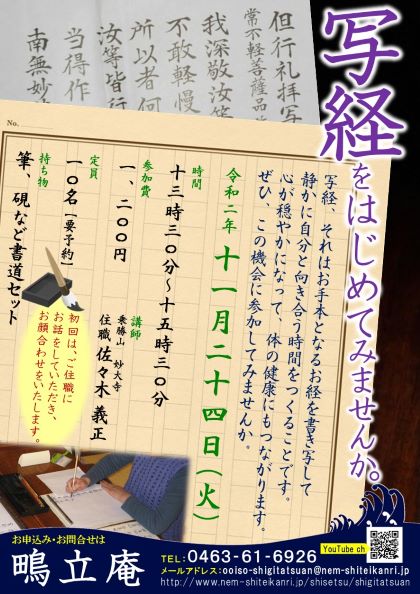 写経をはじめてみませんか。
但行礼拝写
常不軽菩薩品
我深敬汝等
不敢軽慢
所以者何
汝等皆行
当得作
南無妙法
No.
写経、それはお手本となるお経を書き写して
静かに自分と向き合う時間をつくることです。
心が穏やかになって、体の健康にもつながります。
ぜひ、この機会に参加してみませんか。
令和二年 十一月二十四日(火)
時間
十三時三〇分～十五時三〇分
参加費
一、二〇〇円
講師
乗勝山 妙大寺
住職 佐々木 義正
定員
一〇名【要予約】
持ち物
筆、硯など書道セット
初回は、ご住職に
お話をしていただき、
お顔合わせをいたします。
お申込み・お問合せは
鴫立庵
TEL:0463-61-6926
YouTube ch
メールアドレス:ooiso-shigitatsuan@nem-shiteikanri.jp
http://www.nem-shiteikanri.jp/shisetsu/shigitatsuan